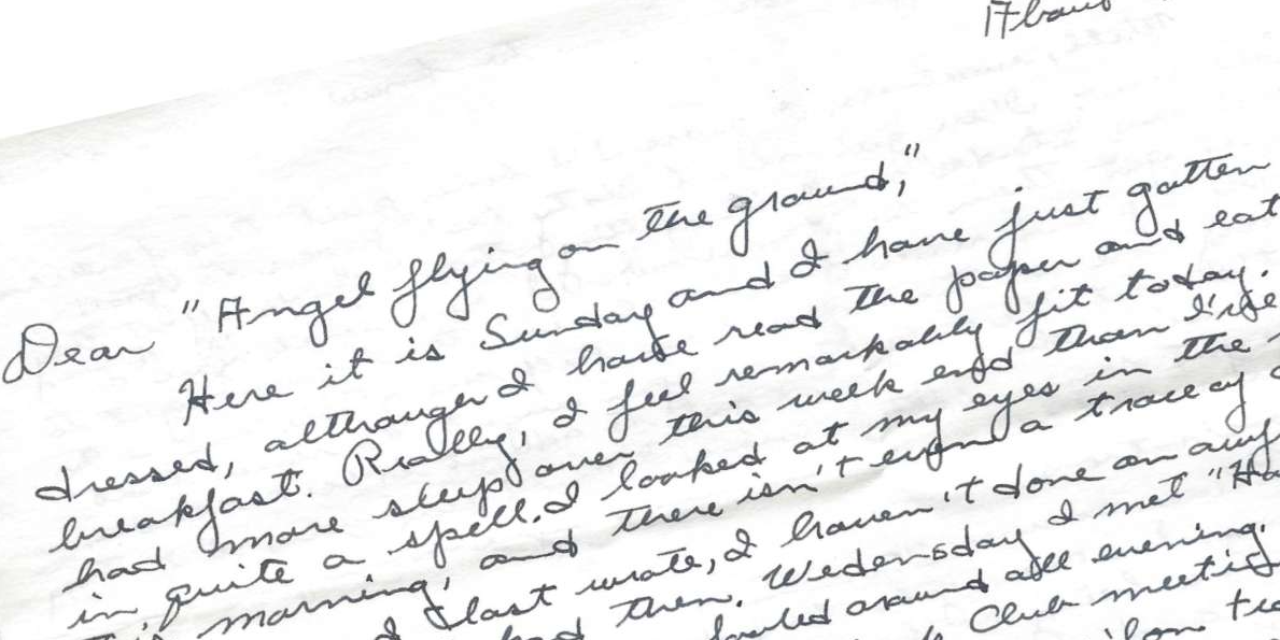 Dear "Angel flying on the ground,"
Here it is Sunday and I have just gotten
dressed, although I have read the paper and eat
breakfast. Really, I feel remarkably fit today.
had more sleep over this week end than I've
in quite a spell. I looked at my eyes in the
morning, and there isn't even a trace of
I last wrote, I haven't done an awf
then. Wedensday I met "Ha
around all evening.
Club meeting